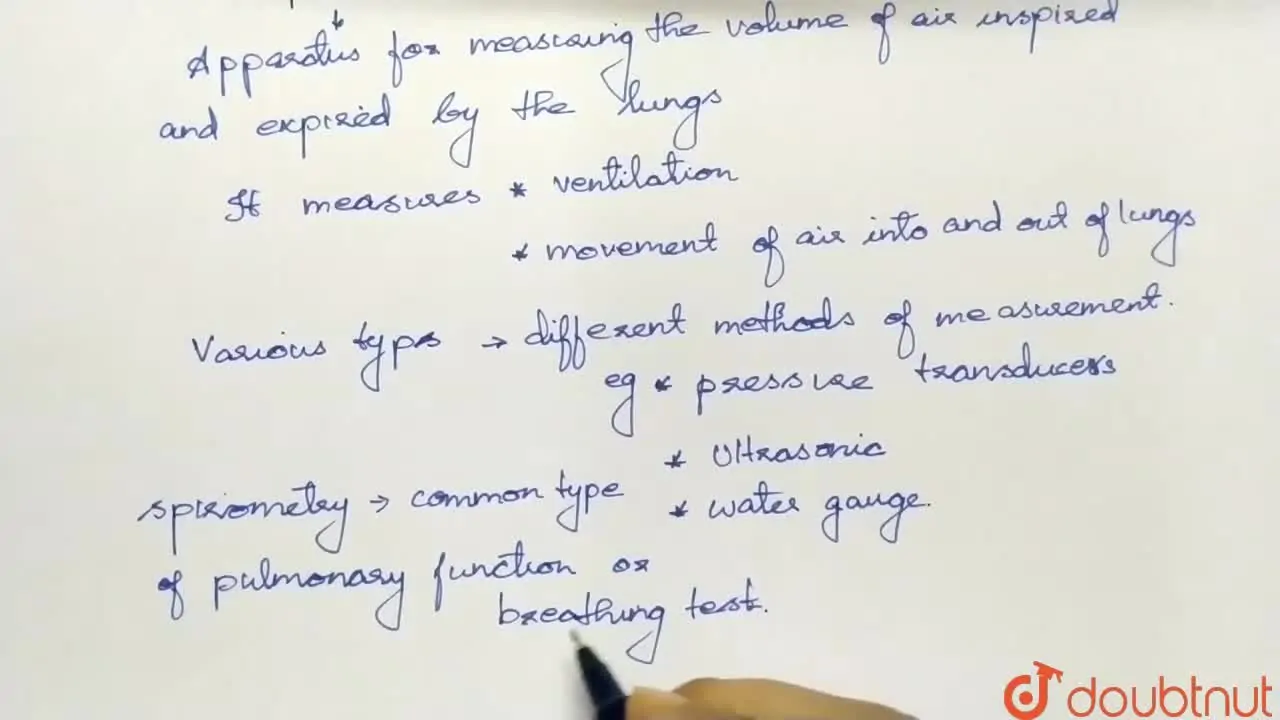 Apparatus for measuring the volume of air inspired
and expired by the lungs
It measures * ventilation
* movement of air into and out of lungs
Various types → different methods of measurement.
eg * pressure transducers
* Ultrasonic
spirometry → common type * water gauge.
of pulmonary function or
breathing test.
doubtnut